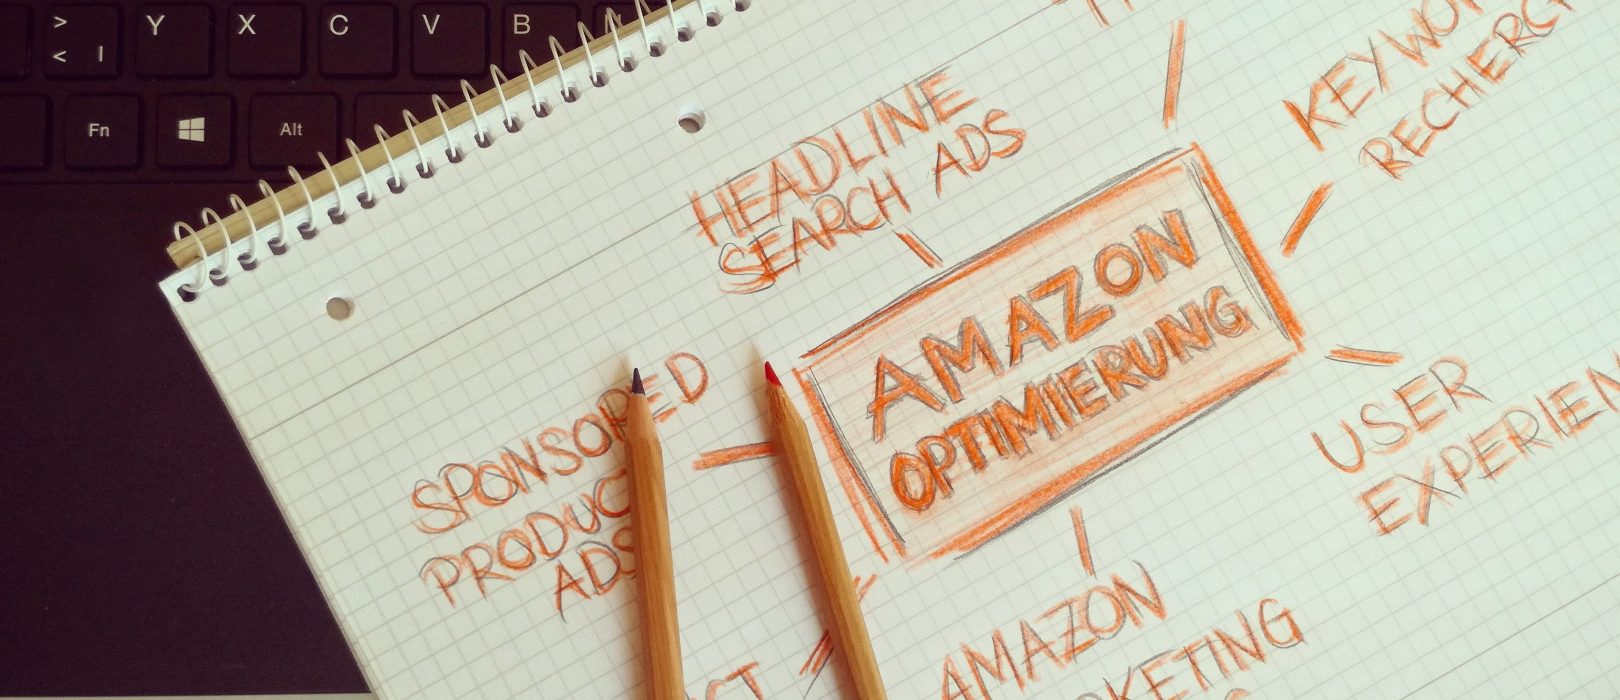 > Y X C V B
< |
Fn Alt
HEADLINE
SEARCH ADS
KEYWOR
RECHERCH
AMAZON
OPTIMIERUNG
SPONSORED
PRODUC
ADS
USER
EXPERIEN
AMAZON
KETING
CT